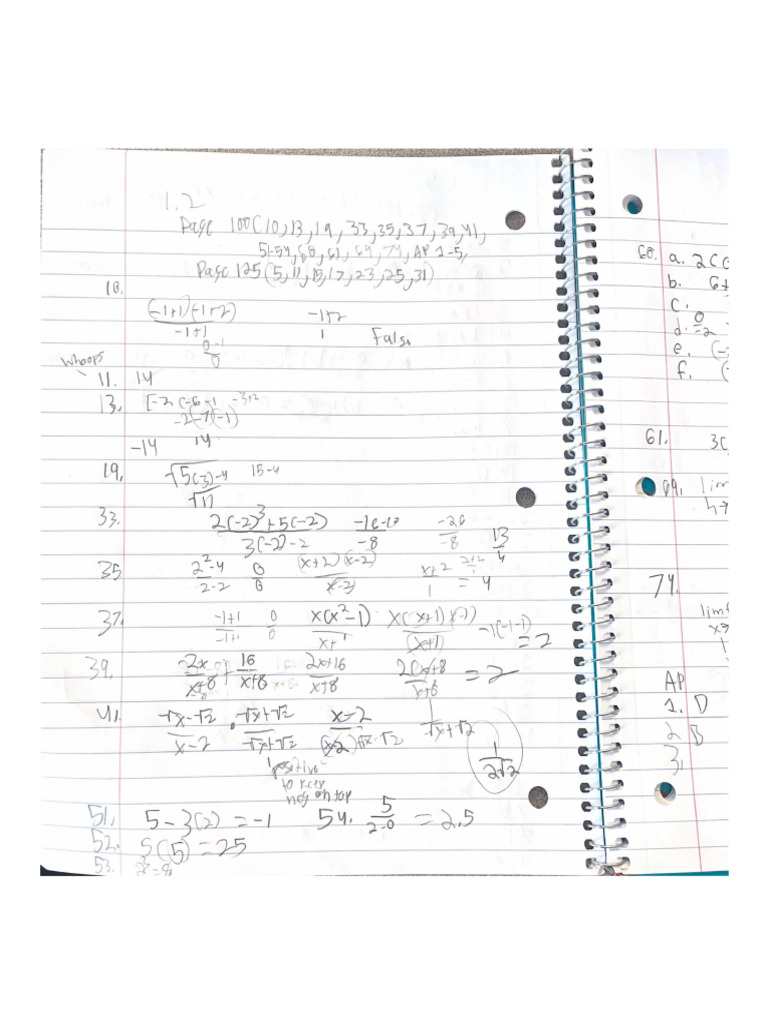 1.2
Page 100(10,13,19,33,35,37,39,41,
51-54,60,61,69,74,AP 1-5,
Page 125(5,11,15,17,23,25,31)
10.
(-1+1)(-1+2)
-1+1
-1+2
1
False
0-1
0
Whoops
11. 14
13. [-2(-6-1 -3+2
-2(-7)(-1)
-14 14
19. √5(3)-4 15-4
√11
33. 2(-2)³+5(-2) -16-10 -26 13
3(-2)-2 -8 -8 4
35 2²-4 0 (x+2)(x-2) x+2 2+2
2-2 0 x-2 1 = 4
37. -1+1 0 x(x²-1) x(x+1)(x-1) -1(-1-1) = 2
-1+1 0 x+1 (x+1)
39. 2x + 16 2x+16 2(x+8 = 2
x+8 x+8 x+8 x+8
41. √x-√2 · √x+√2 x-2 1
x-2 √x+√2 (x-2) √x-√2 √x+√2
1
2√2
positive
to keep
neg on top
51. 5-3(2) = -1 54. 5 = 2.5
2-0
52. 5(5) = 25
53. 2³=8
60. a. 2(
b. 6+
c.
d. 0
-2
e. (-
f. (
61. 3(
69. lim
h→
74.
lim
x→
AP
1. D
2 B
3.